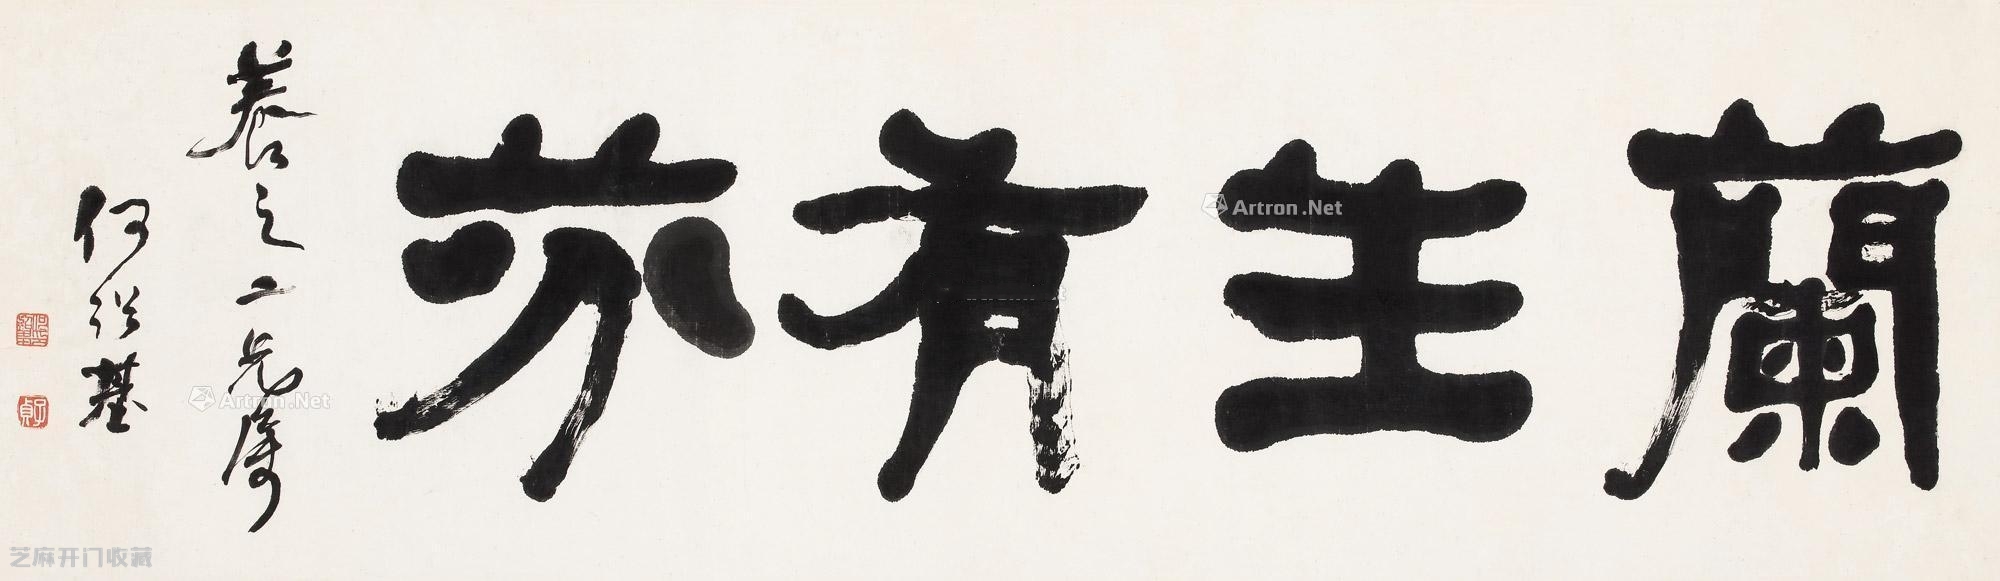 蘭生有芬
養之二兄屬
何紹基
子貞
Artron.Net
Artron.Net
芝麻开门收藏